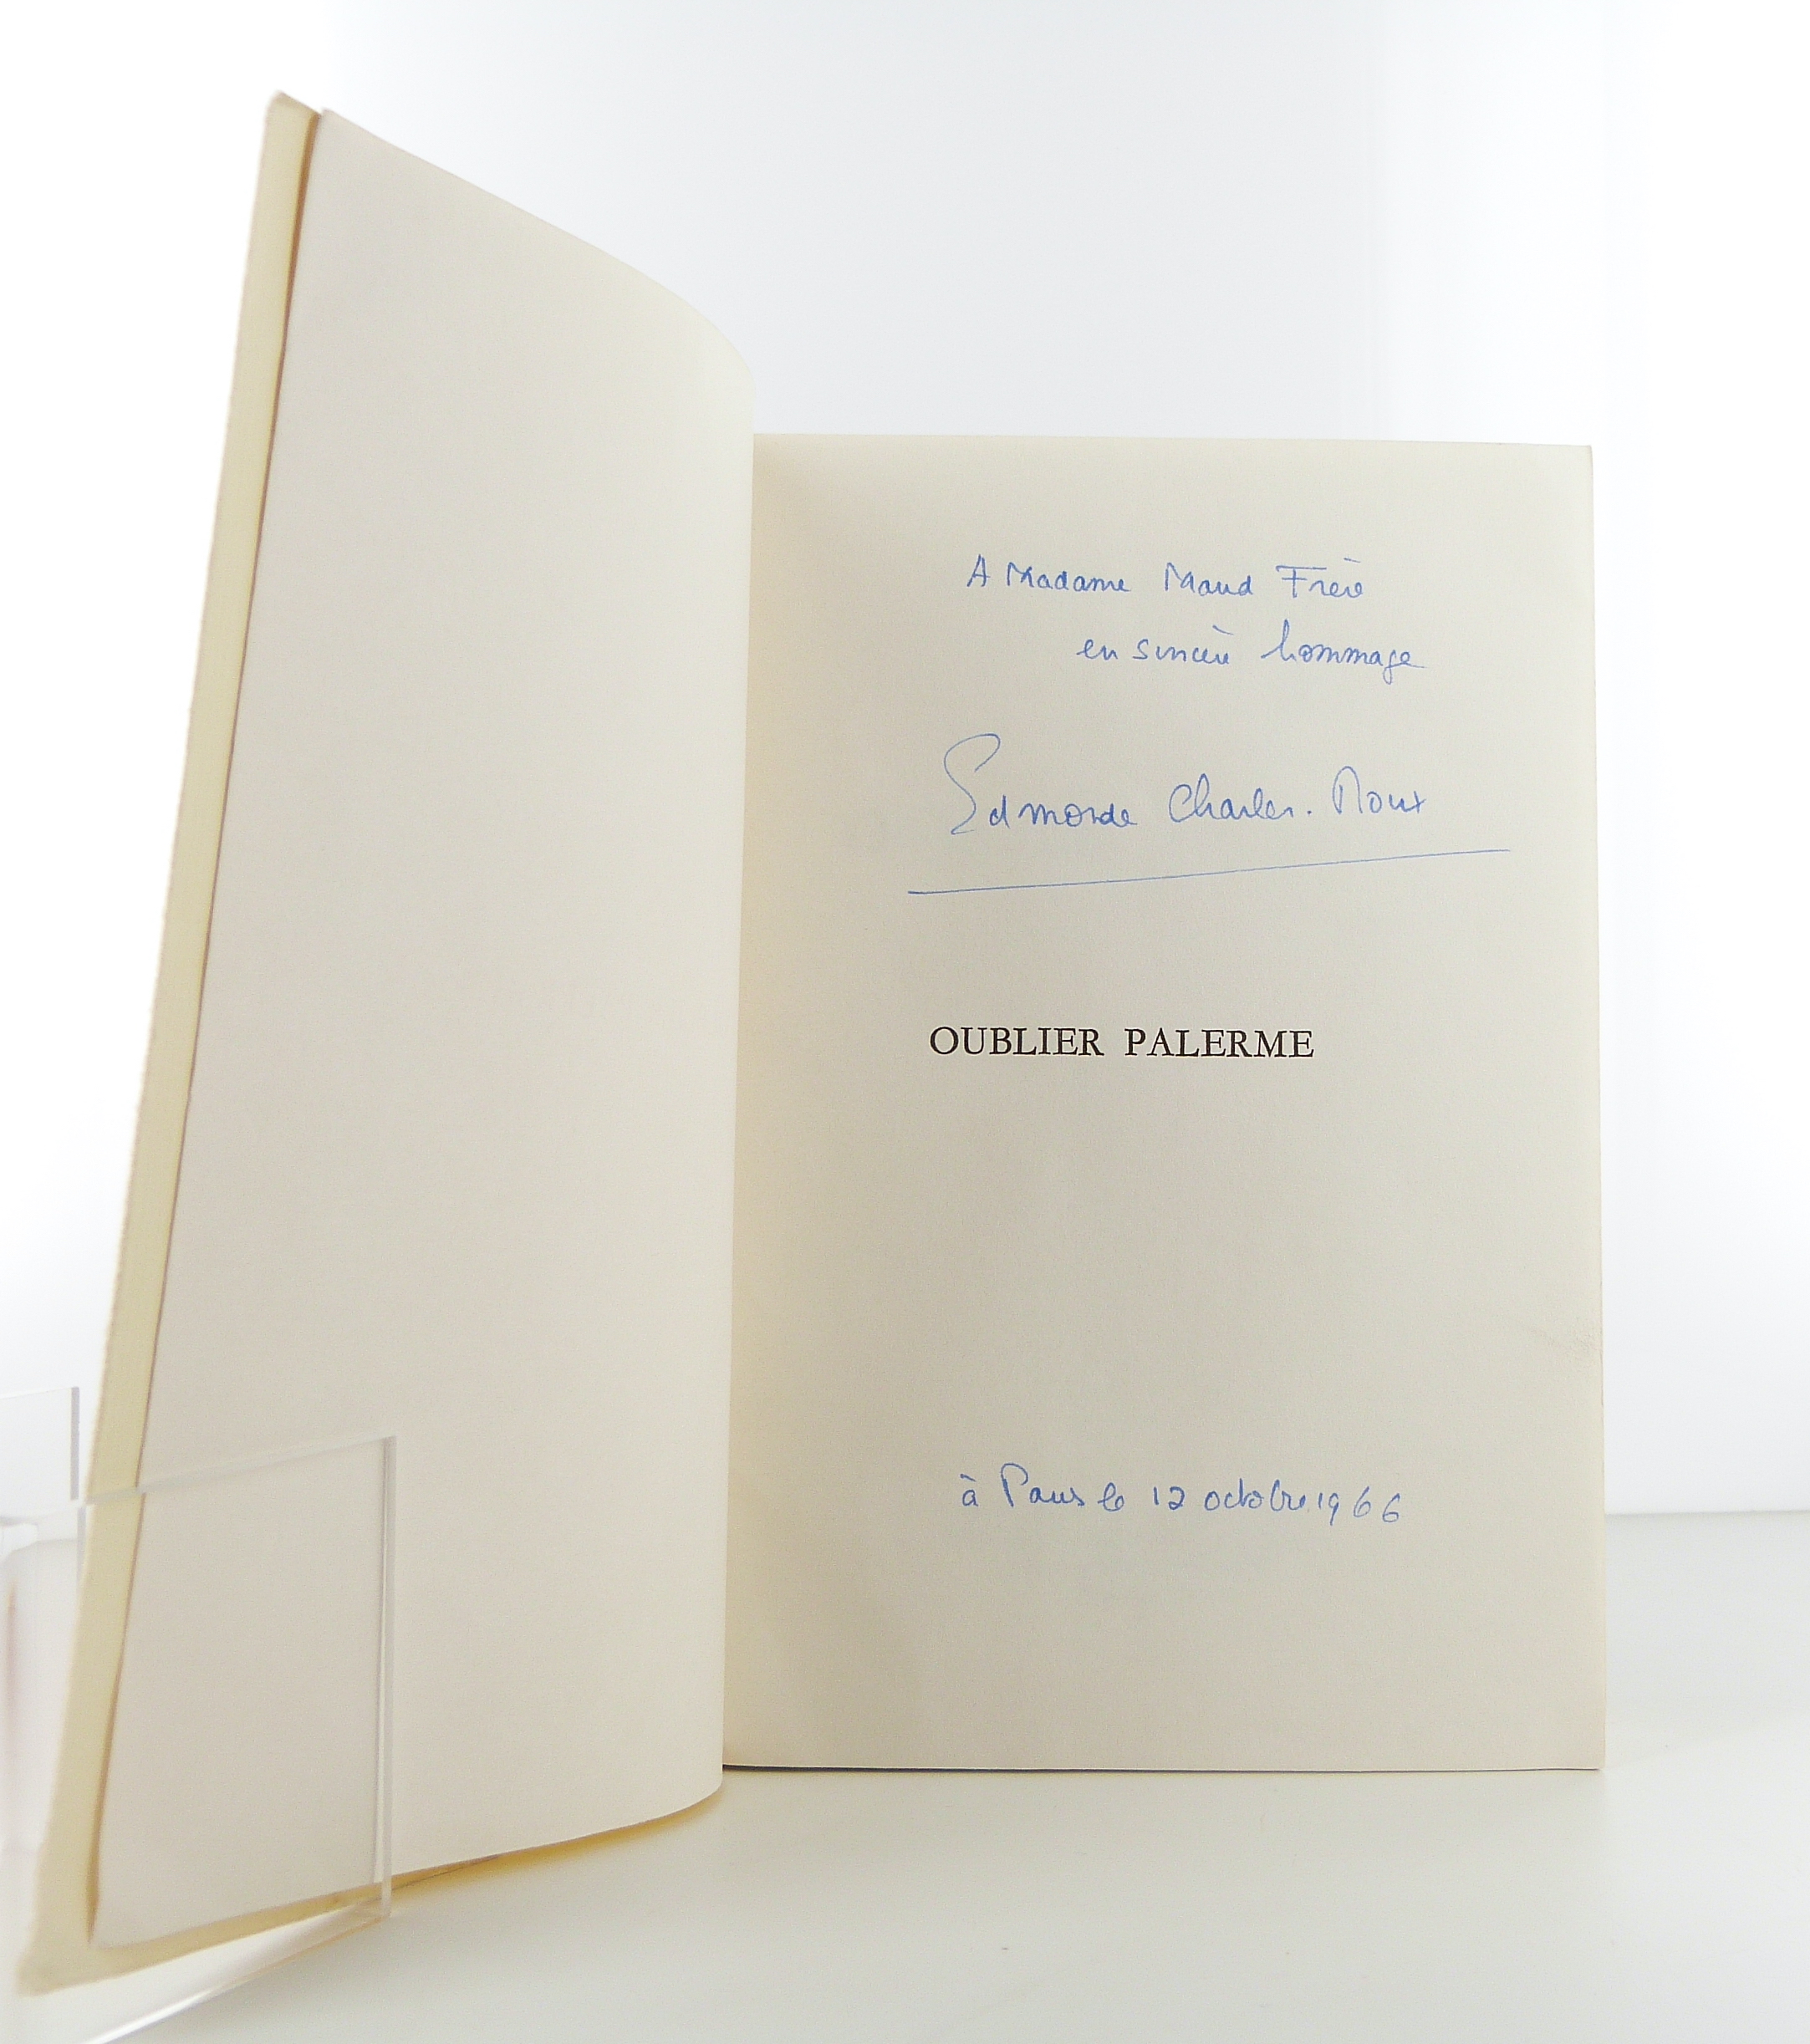 A Madame Maud Frère
en sincère hommage
Edmonde Charles-Roux
OUBLIER PALERME
à Paris le 12 octobre 1966